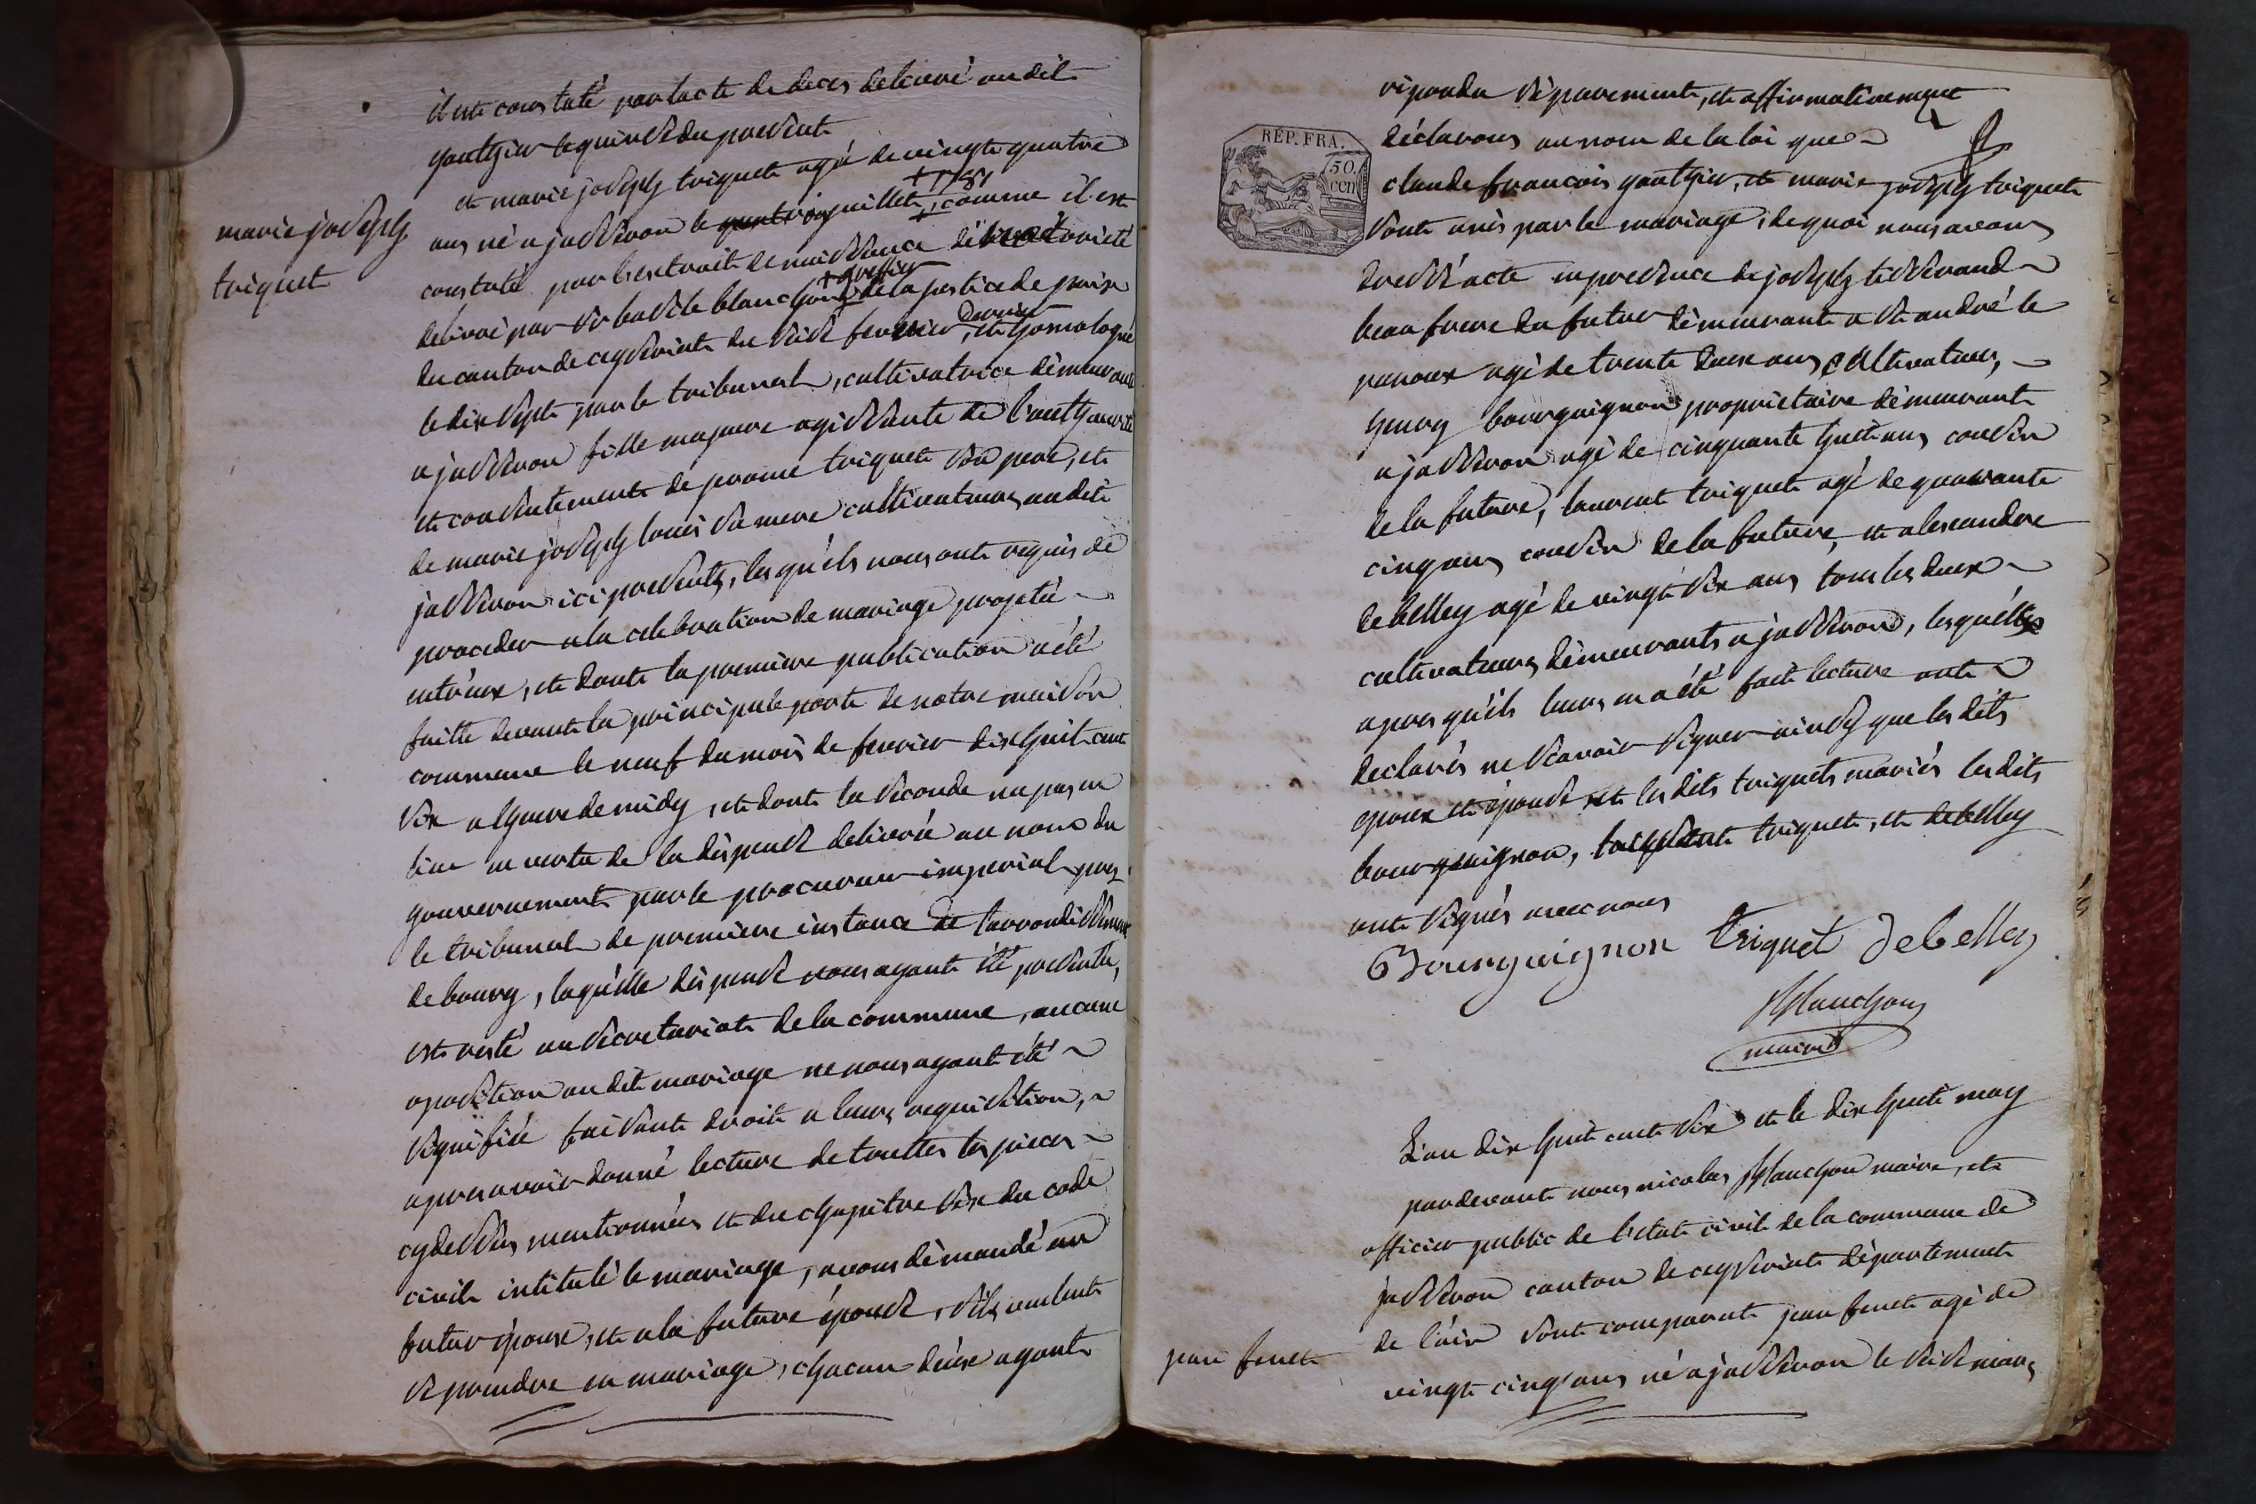 il est constaté par lacte de deces délivré au dit
gauthier le quinze du présent
marie joseph
triquet
et marie joseph triquet agée de vingt quatre
+ 1781
ans né a jasseron le juillet, comme il est
constaté par l'extrait de naissance de notorieté
+ greffier
délivré par sr basile blanchon de la justice de paix
dernier
du canton de ceyseriat du seize fevrier, et homologué
le dix sept par le tribunal, cultivatrice démeurant
a jasseron fille majeure agissante de l'authorité
et consentement de prome triquet son pere, et
de marie joseph louis sa mere cultivateurs au dit
jasseron ici présents, les quéls nous ont requis de
proceder a la celebration de mariage projeté
entr'eux, et dont la premiere publication a été
faitte devant la principale porte de notre maison
commune le neuf du mois de fevrier dix huit cent
six a lheure de midy, et dont la seconde na pas eu
lieu en vertu de la dispense délivrée au nom du
gouvernement par le procureur imperial pres
le tribunal de premiere instance de l'arrondissement
de bourg, laquélle dispense nous ayant été présenté,
est resté au sécretariat de la commune, aucune
oposition au dit mariage ne nous ayant été
signifiée faisant droit a leurs requisition,
apres avoir donné lecture de touttes les pieces
cy dessus mentionnées et du chapitre six du code
civil intitulé le mariage, avons démandé au
futur époux, et a la future épouse, s'ils veulent
se prendre en mariage, chacun d'eux ayant
répondu séparement, et affirmativement
déclarons au nom de la loi que
RÉP. FRA.
50
cen
claude francois gauthier, et marie joseph triquet
sont unis par le mariage, de quoi nous avons
dressé acte en presence de joseph tisserand
beau frere du futur démeurant a st andré le
panoux agé de trente deux ans cultivateur,
henry bourguignon proprietaire démeurant
a jasseron agé de cinquante huit ans cousin
de la future, laurent triquet agé de quarante
cinq ans cousin de la future, et alexandre
debelley agé de vingt six ans tous les deux
cultivateurs démeurants a jasseron, lesquéls
apres qu'ils leurs en a été fait lecture ont
déclarés ne scavoir signer ainsy que les dits
epoux et épouse et les dits triquets mariés les dits
bourguignon, triquet, et debelley
ont signés avec nous
Bourguignon triquet debelley
Blanchon
maire
L'an dix huit cent six et le dix huit may
pardevant nous nicolas Blanchon maire, et
officier public de l'état civil de la commune de
jasseron canton de ceyseriat département
jean feuct
de l'ain sont comparut jean feuct agé de
vingt cinq ans né a jasseron le seize mars